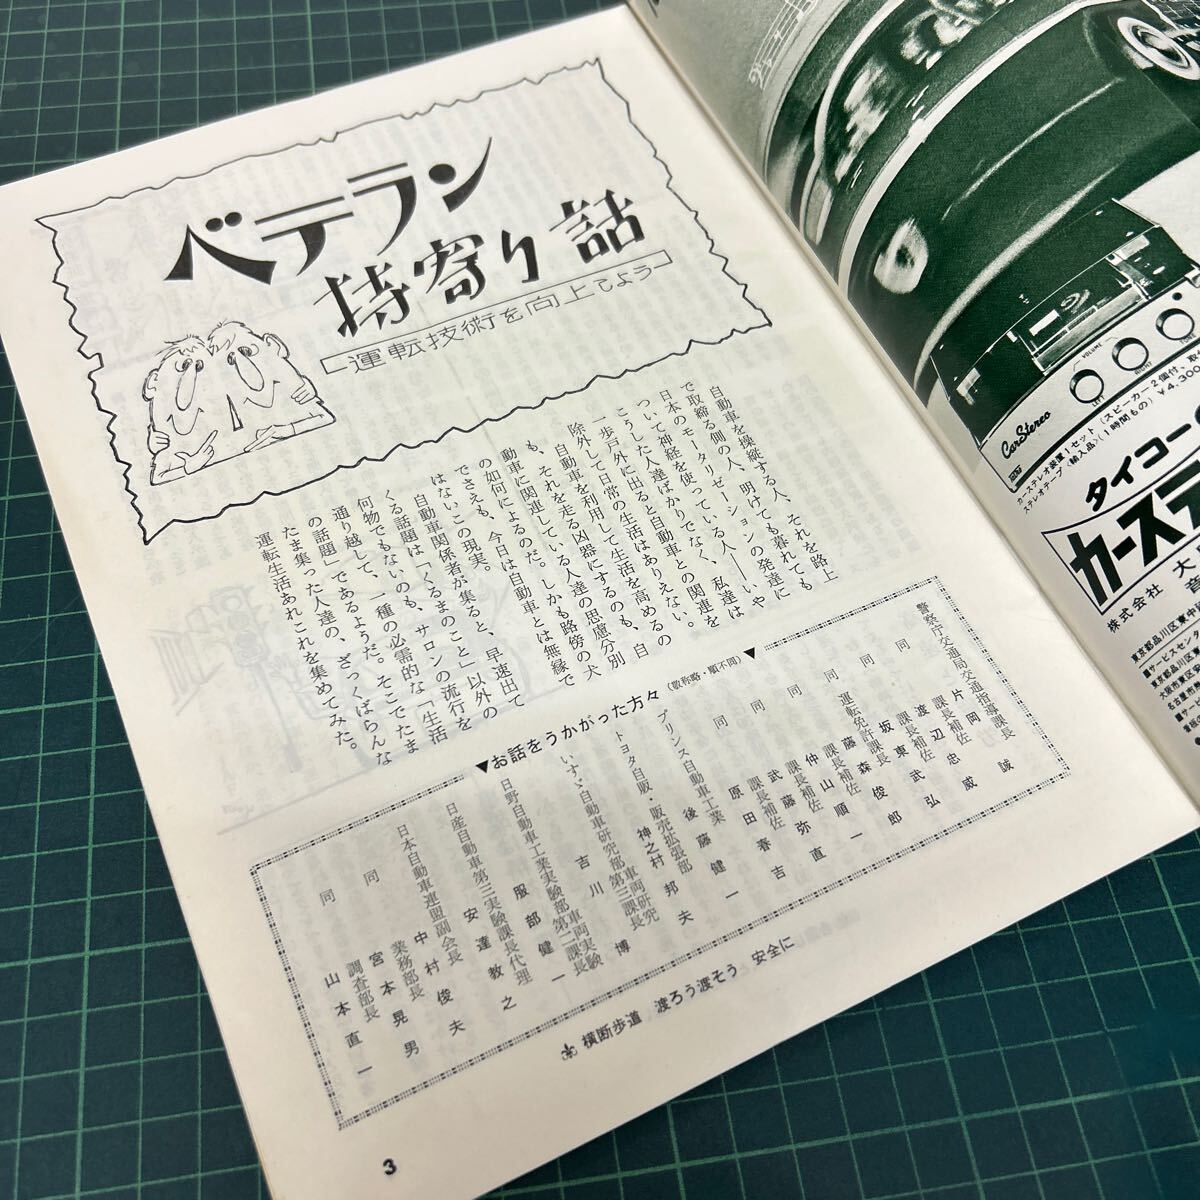 ベテラン
持寄り話
運転技術を向上しよう
自動車を操縦する人、それを路上
で取締る側の人、明けても暮れても
日本のモータリゼーションの発達に
ついて神経を使っている人――いや
こうした人達ばかりでなく、私達は
一歩戸外に出ると自動車との関連を
除外して日常の生活はありえない。
自動車を利用して生活を高めるの
も、それを走る凶器にするのも、自
動車に関連している人達の思慮分別
の如何によるのだ。しかも路傍の犬
でさえも、今日は自動車とは無縁で
はないこの現実。
自動車関係者が集ると、早速出て
くる話題は「くるまのこと」以外の
何物でもないのも、サロンの流行を
通り越して、一種の必需的な「生活
の話題」であるようだ。そこでたま
たま集った人達の、ざっくばらんな
運転生活あれこれを集めてみた。
▼お話をうかがった方々(敬称略・順不同)▼
警察庁交通局交通指導課長
片岡誠
同 課長補佐
渡辺忠威
同 課長補佐
坂東武弘
同 運転免許課長
藤森俊郎
同 課長補佐
仲山順一
同 課長補佐
武藤弥直
同 課長補佐
原田春吉
プリンス自動車工業
後藤健一
トヨタ自販・販売拡張部
神之村邦夫
いすゞ自動車研究部車両研究第三課長
吉川博
日野自動車工業実験部車両実験第二課長
服部健一
日産自動車第三実験課長代理
安達教之
日本自動車連盟副会長
中村俊夫
同 業務部長
宮本晃男
同 調査部長
山本直一
横断歩道 渡ろう渡そう 安全に
3
VOLUME
LEFT
RIGHT
TONE
CarStereo
カーステレオ装置1セット(スピーカー2個付、取
ステレオテープ(輸入品)(1時間もの)¥4,300
タイコー
カーステ
株式会社 大
東京都品川区東中
■サービスセン
東京都品川区東
大阪市東区
名古屋